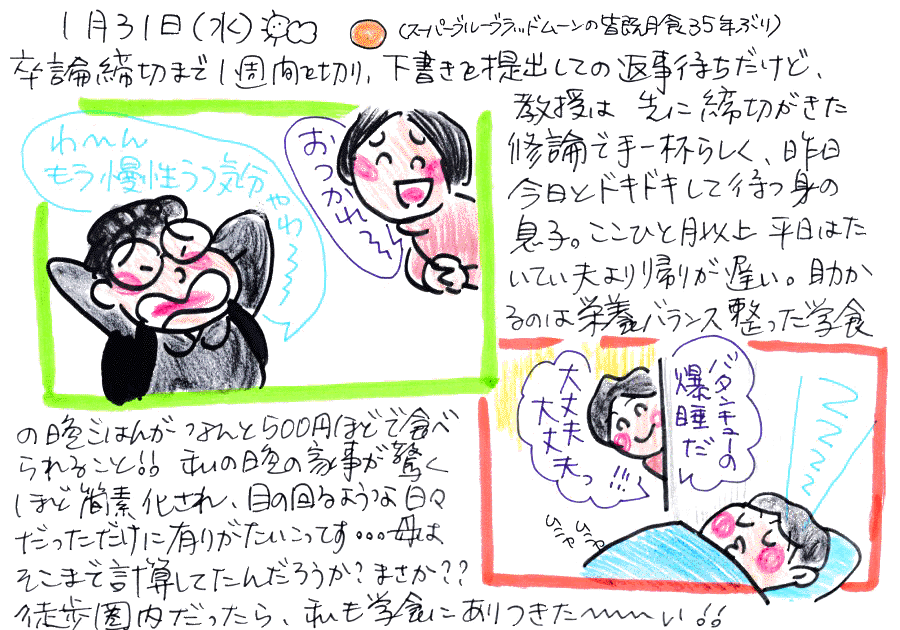 1月31日(水)
(スーパーブルーブラッドムーンの皆既月食35年ぶり)
卒論締切まで1週間を切り、下書きを提出しての返事待ちだけど、
教授は先に締切がきた
修論で手一杯らしく、昨日
今日とドキドキして待つ身の
息子。ここひと月以上平日はた
いてい夫より帰りが遅い。助か
るのは栄養バランス整った学食
わ〜〜ん
もう慢性うつ気分
やわ〜〜〜
おつかれ〜〜
の晩ごはんがなんと500円ほどで食べ
られること!! 私の晩の家事が驚く
ほど簡素化され、目の回るような日々
だっただけに有りがたいこってす…母は
そこまで計算してたんだろうか?まさか??
徒歩圏内だったら、私も学食にありつきた〜〜〜い!!
大丈夫
大丈夫っ
!!!
バタンキューの
爆睡だ〜
ZZZZZ
ひそひそ